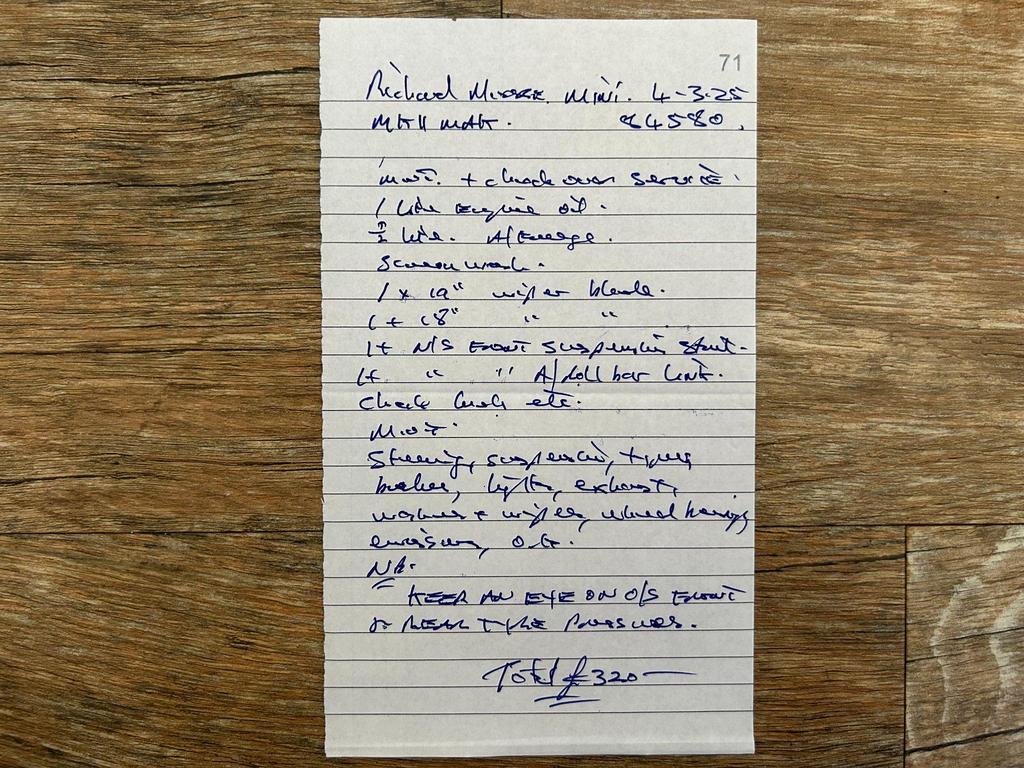 71
Richard Moore. Mini. 4-3-25
84580.
M.O.T. + check over service.
1 litre engine oil.
½ litre. A/freeze.
Screen wash.
1 x 19" wiper blade.
1 + 18" " "
1+ N/S FRONT suspension strut.
1+ " " A/Roll bar link.
Check levels etc.
M.O.T.
Steering, suspension, tyres
brakes, lights, exhaust,
washers + wipers, wheel bearings
emissions, O.K.
NB.
KEEP AN EYE ON O/S FRONT
& REAR TYRE Pressures.
Total £320—